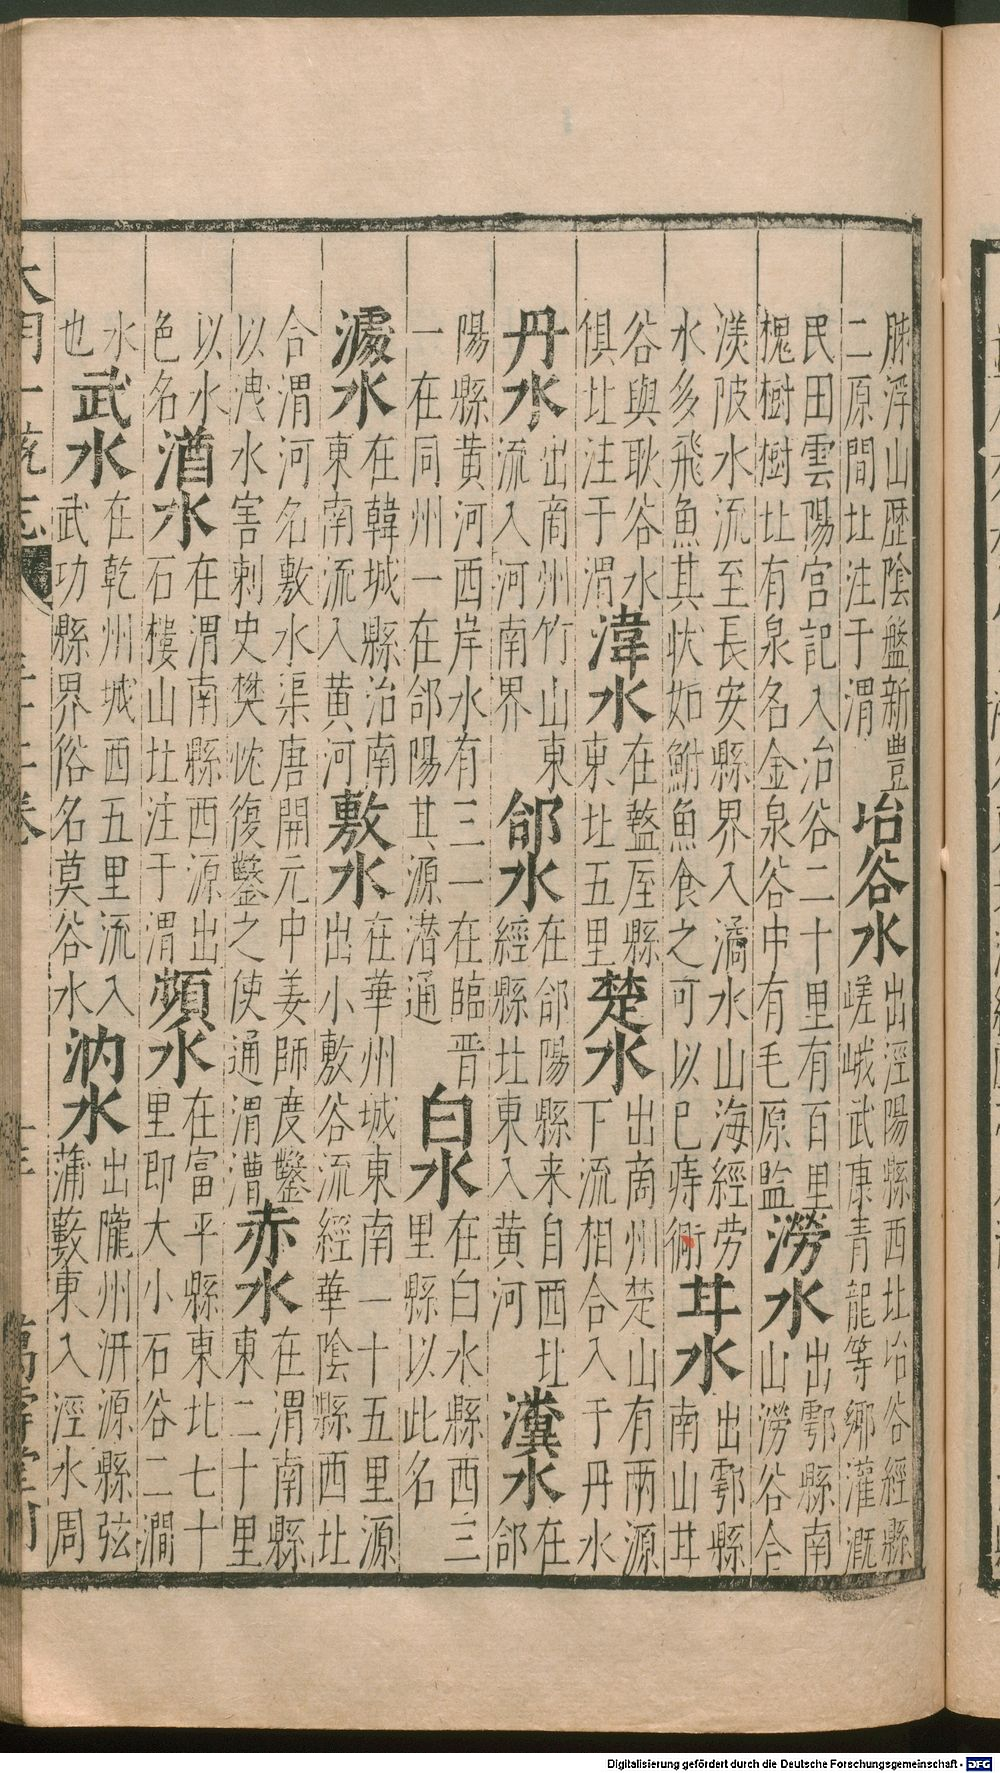 脉浮山歴陰盤新豐
二原間北注于渭
冶谷水
出涇陽縣西北冶谷經縣
嵯峨武康青龍等鄉灌溉
民田雲陽宫記入冶谷二十里有百里
槐樹樹北有泉名金泉谷中有毛原監
澇水
出鄠縣南
山澇谷合
渼陂水流至長安縣界入潏水山海經勞
水多飛魚其状如鮒魚食之可以已痔衕
甘水
出鄠縣
南山甘
谷與耿谷水
俱北注于渭
湋水
在盩厔縣
東北五里
楚水
出商州楚山有兩源
下流相合入于丹水
丹水
出商州竹山東
流入河南界
郃水
在郃陽縣来自西北
經縣北東入黄河
瀵水
在
郃
陽縣黄河西岸水有三一在臨晋
一在同州一在郃陽其源潜通
白水
在白水縣西三
里縣以此名
澽水
在韓城縣治南
東南流入黄河
敷水
在華州城東南一十五里源
出小敷谷流經華陰縣西北
合渭河名敷水渠唐開元中姜師度鑿
以洩水害刺史樊忱復鑿之使通渭漕
赤水
在渭南縣
東二十里
以水
色名
湭水
在渭南縣西源出
石樓山北注于渭
頻水
在富平縣東北七十
里即大小石谷二澗
水
也
武水
在乾州城西五里流入
武功縣界俗名莫谷水
汭水
出隴州汧源縣弦
蒲藪東入涇水周
大明一統志
萬壽堂刊
Digitalisierung gefördert durch die Deutsche Forschungsgemeinschaft - DFG